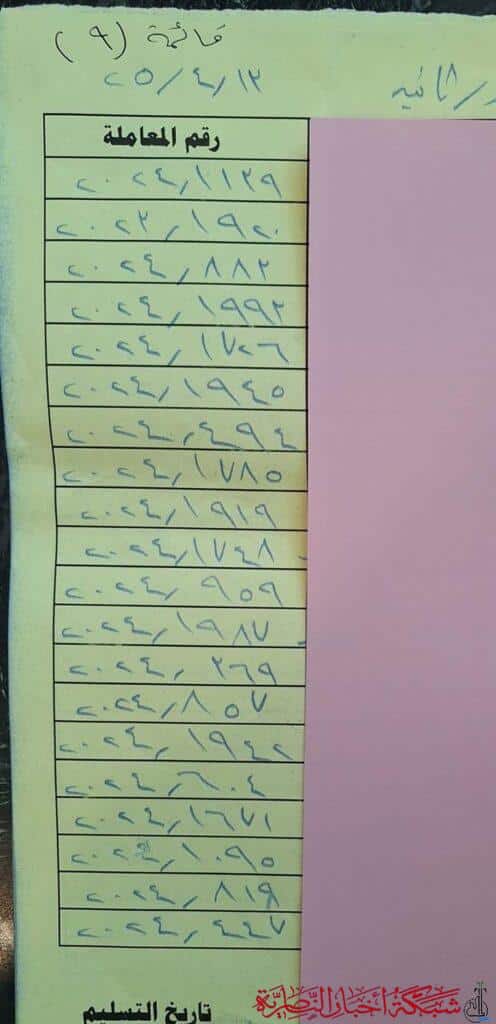 قائمة (٩)
٢٥/٤/١٣
ثانيه
رقم المعاملة
٢٠٢٤/١١٣٩
٢٠٢٣/١٩٢٠
٢٠٢٤/٨٨٣
٢٠٢٤/١٩٩٣
٢٠٢٤/١٧٢٦
٢٠٢٤/١٩٤٥
٢٠٢٤/٤٩٤
٢٠٢٤/١٧٨٥
٢٠٢٤/١٩١٩
٢٠٢٤/١٧٤٨
٢٠٢٤/٩٥٩
٢٠٢٤/١٩٨٧
٢٠٢٤/٣٦٩
٢٠٢٤/٨٥٧
٢٠٢٤/١٩٤٢
٢٠٢٤/٦٠٤
٢٠٢٤/١٦٧١
٢٠٢٤/١٠٩٥
٢٠٢٤/٨١٩
٢٠٢٤/٤٤٧
تاريخ التسليم
شبكة أخبار الناصرية